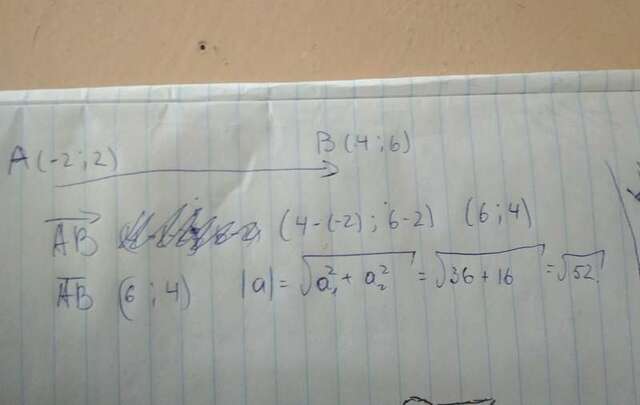 A(-2;2) B(4;6)
AB (4-(-2);6-2) (6;4)
AB (6;4) |a|=√a₁²+a₂²=√36+16=√52